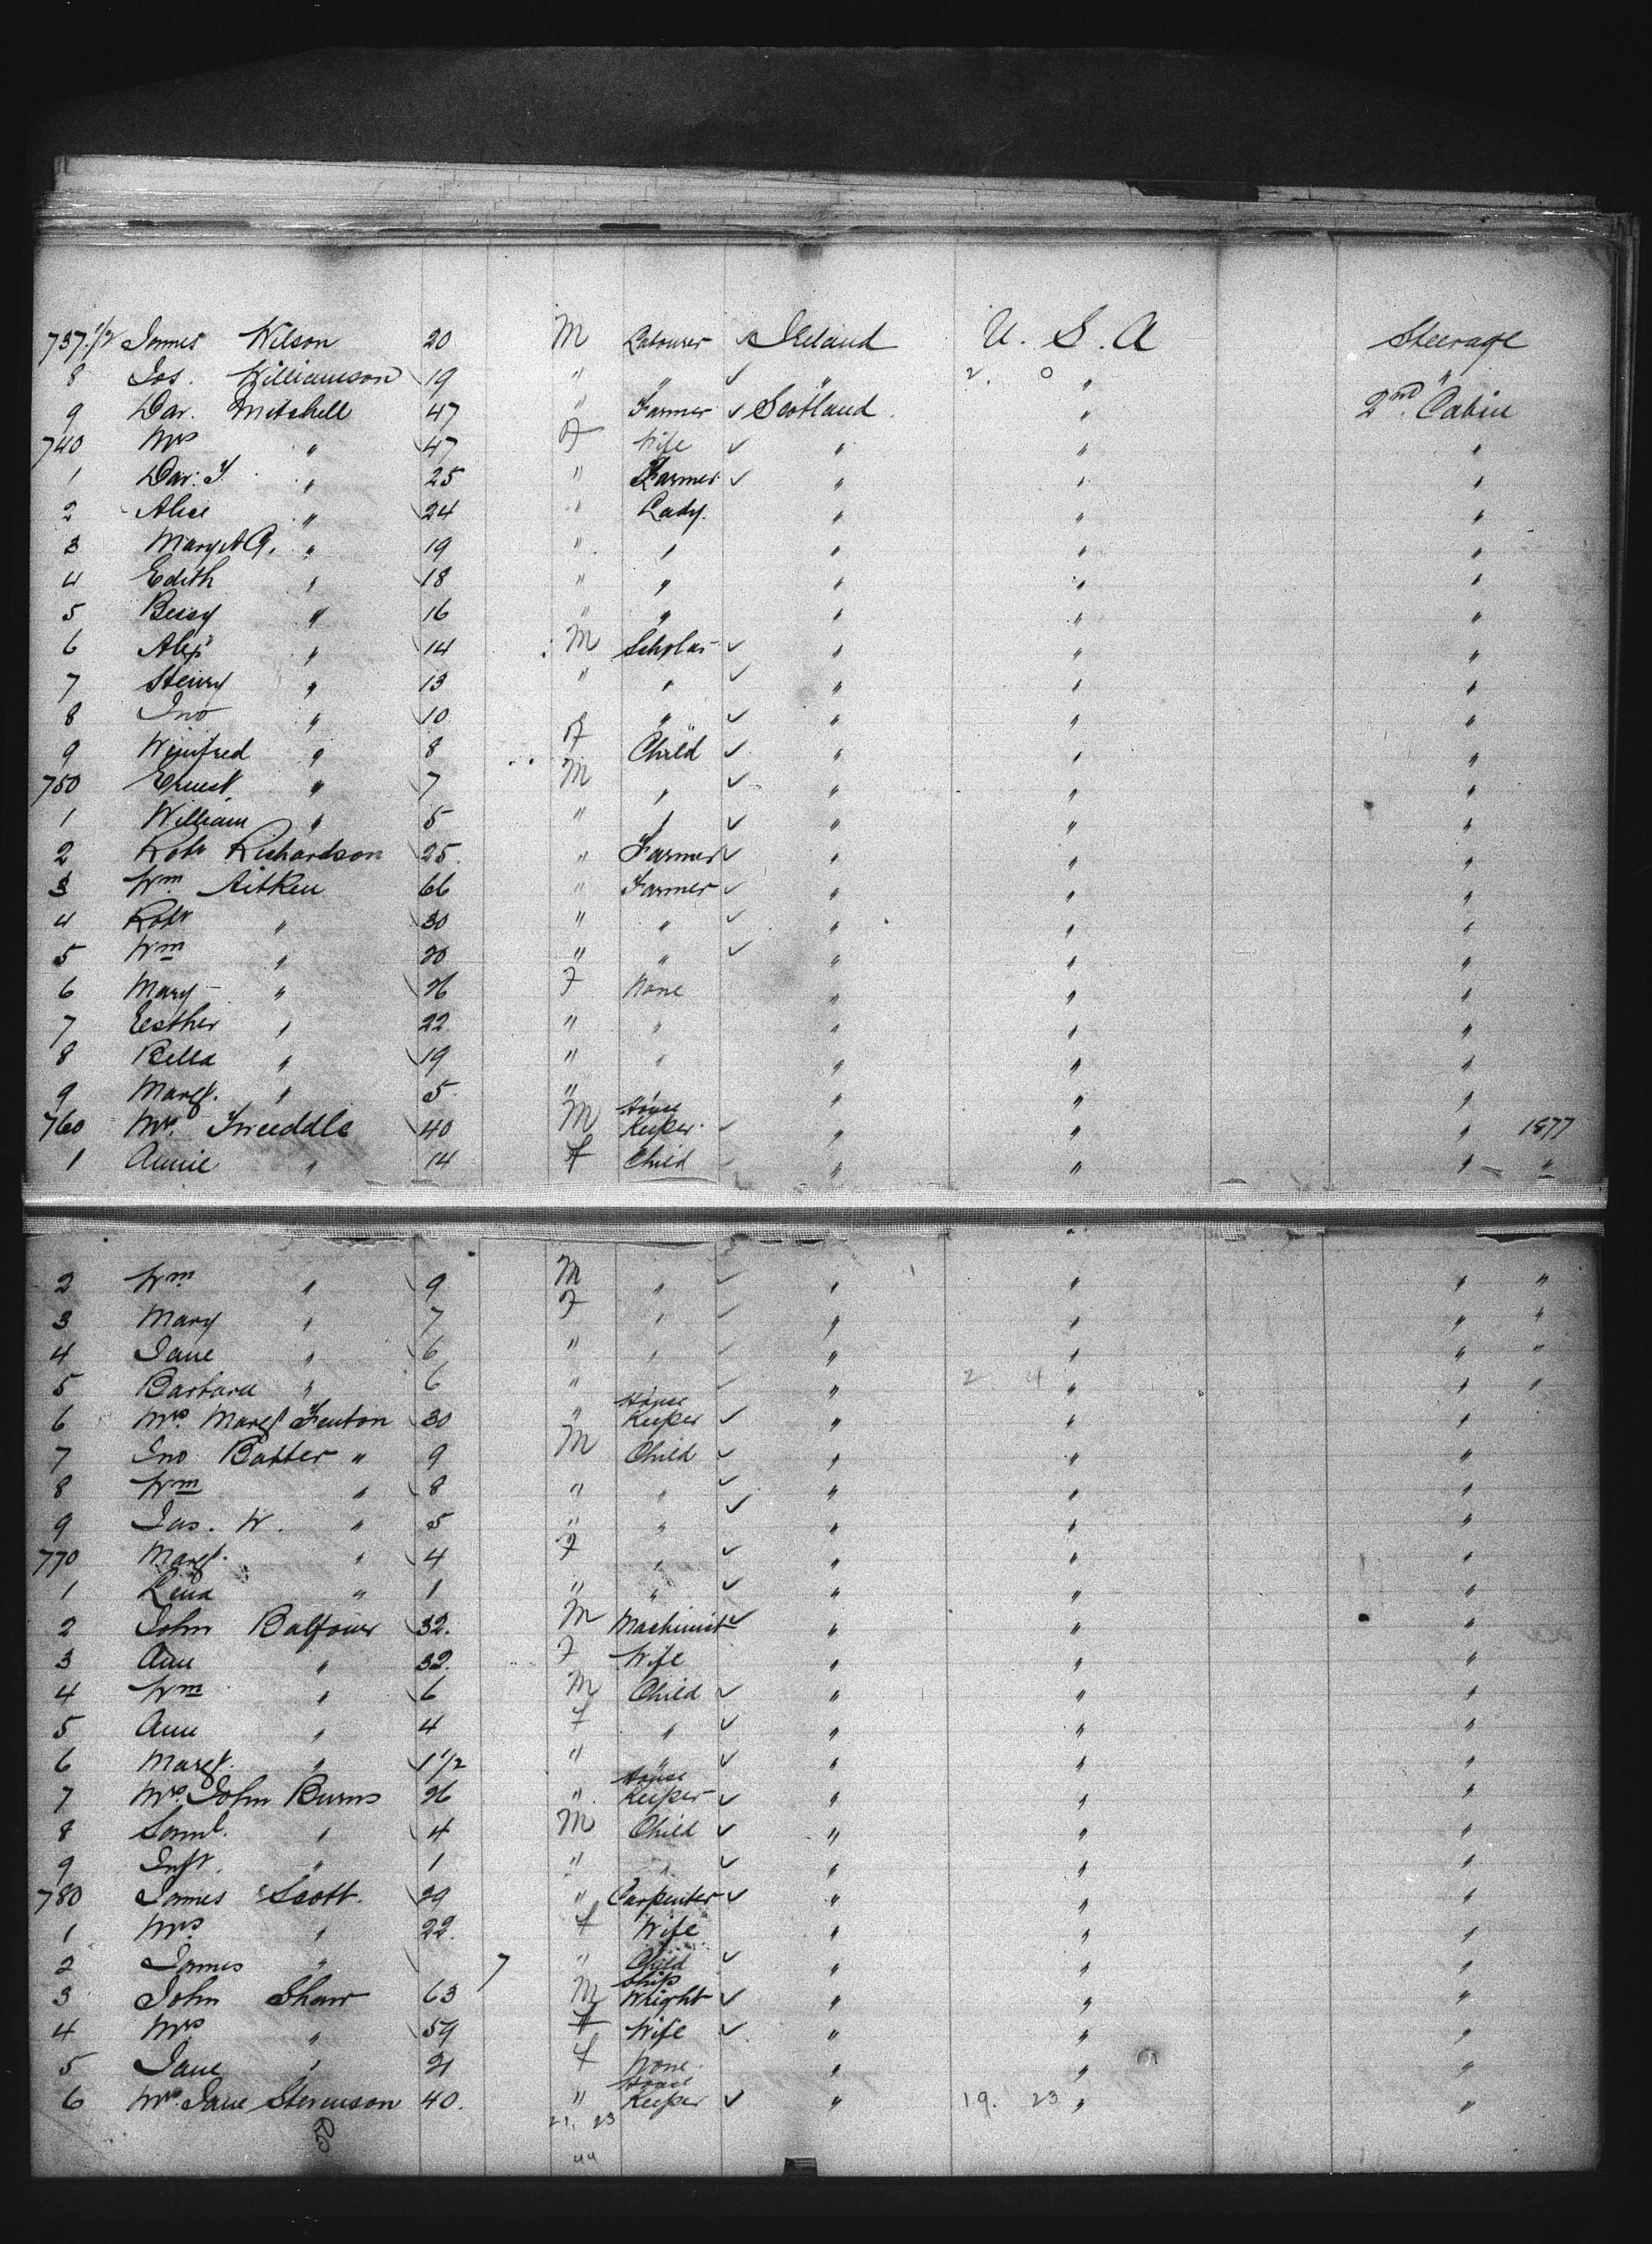 737 1/2 James Wilson 20 M Labourer Ireland U. S. A Steerage
8 Jos. Williamson 19 " " " 2. 0 " "
9 Dav. Mitchell 47 " Farmer Scotland " 2nd Cabin
740 Mrs " 47 F Wife " " "
1 Dav. " 25 " Farmer " " "
2 Alice " 24 " Lady. " " "
3 " 19 " " " " "
4 Edith " 18 " " " " "
5 Bessy " 16 " " " " "
6 Alex " 14 M Scholar " " "
7 Henry " 13 " " " " "
8 Jno " 10 " " " " "
9 Winifred " 8 F Child " " "
750 Ernest " 7 M " " " "
1 William " 5 " " " " "
2 Robt Richardson 25. " Farmer " " "
3 Wm Aitken 66 " Farmer " " "
4 Robt " 30 " " " " "
5 Wm " 20 " " " " "
6 Mary " 26 F None " " "
7 Eesther " 22 " " " " "
8 Bella " 19 " " " " "
9 Margt. " 5 " " " " "
760 Mr. Tweeddle 40 M House Keeper " " " 1877
1 Annie " 14 F Child " " " "
2 Wm " 9 M " " " " "
3 Mary " 7 F " " " " "
4 Jane " 6 " " " " " "
5 Barbara " 6 " " " 2 4 " " "
6 Mrs. Margt Fenton 30 " House Keeper " " "
7 Jno Batter " 9 M Child " " "
8 Wm " 8 " " " " "
9 Jas. W. " 5 " " " " "
770 Margt. " 4 F " " " "
1 Lena " 1 " " " " "
2 John Balfour 32. M Machinist " " "
3 Ann " 32. F Wife " " "
4 Wm " 6 M Child " " "
5 Ann " 4 F " " " "
6 Margt. " 1 1/2 " " " " "
7 Mrs. John Burns 26 " House Keeper " " "
8 Saml. " 4 M Child " " "
9 Inft. " 1 " " " " "
780 James Scott. 29 " Carpenter " " "
1 Mrs " 22. F Wife " " "
2 James " 7 " Child " " "
3 John Shaw 63 M Ship Wright " " "
4 Mrs " 59 F Wife " " "
5 Jane " 21 F None " " "
6 Mrs. Jane Stevenson 40. " House Keeper " 19. 23 " "
21. 23
44